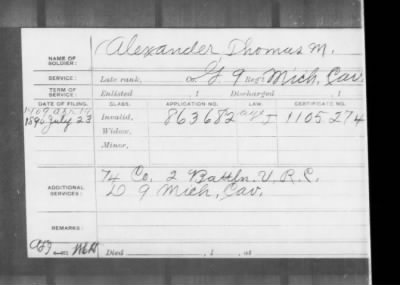 NAME OF SOLDIER: Alexander Thomas M.
SERVICE: Late rank, Co. G, 9 Reg't Mich. Cav.
TERM OF SERVICE: Enlisted , 1 Discharged , 1
DATE OF FILING. CLASS. APPLICATION NO. LAW. CERTIFICATE NO.
1890 July 23 Invalid, 863682 1105274
Widow,
Minor,
ADDITIONAL SERVICES: 74 Co. 2 Battln. V.R.C.
D 9 Mich. Cav.
REMARKS:
Died , 1 , at